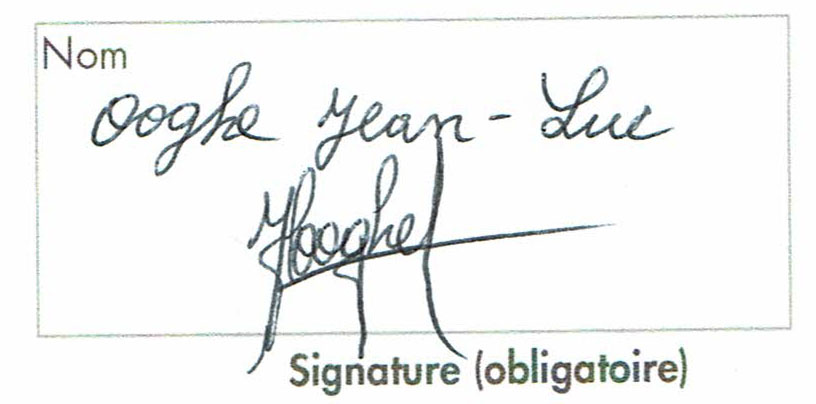 Nom
Ooghe Jean-Luc
JLooghe
Signature (obligatoire)